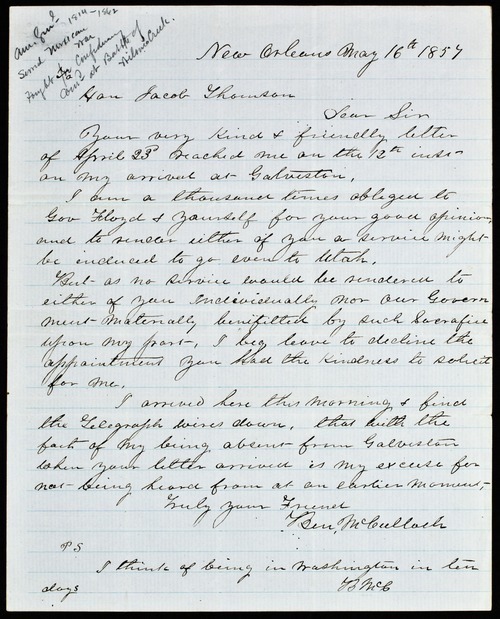 Am. Genl. 1814-1862
Served Mexican War
Fought for Confederacy
at Battle of
New Orleans May 16th 1857
Hon Jacob Thomson
Dear Sir
Your very kind & friendly letter
of April 23d reached me on the 12th inst-
on my arrival at Galveston.
I am a thousand times obliged to
Gov Floyd & yourself for your good opinion,
and to render either of you a service might
be enduced to go even to Utah.
But as no service would be rendered to
either of you individually nor our Govern
ment materially benifitted by such Sacrafice
upon my part, I beg leave to decline the
appointment you had the kindness to solicit
for me.
I arrived here this morning & find
the Telegraph wires down, that with the
fact of my being absent from Galveston
when your letter arrived is my excuse for
not being heard from at an earlier moment,
Truly your Friend
Ben, McCulloch
PS
I think of being in Washington in ten
days
B McC